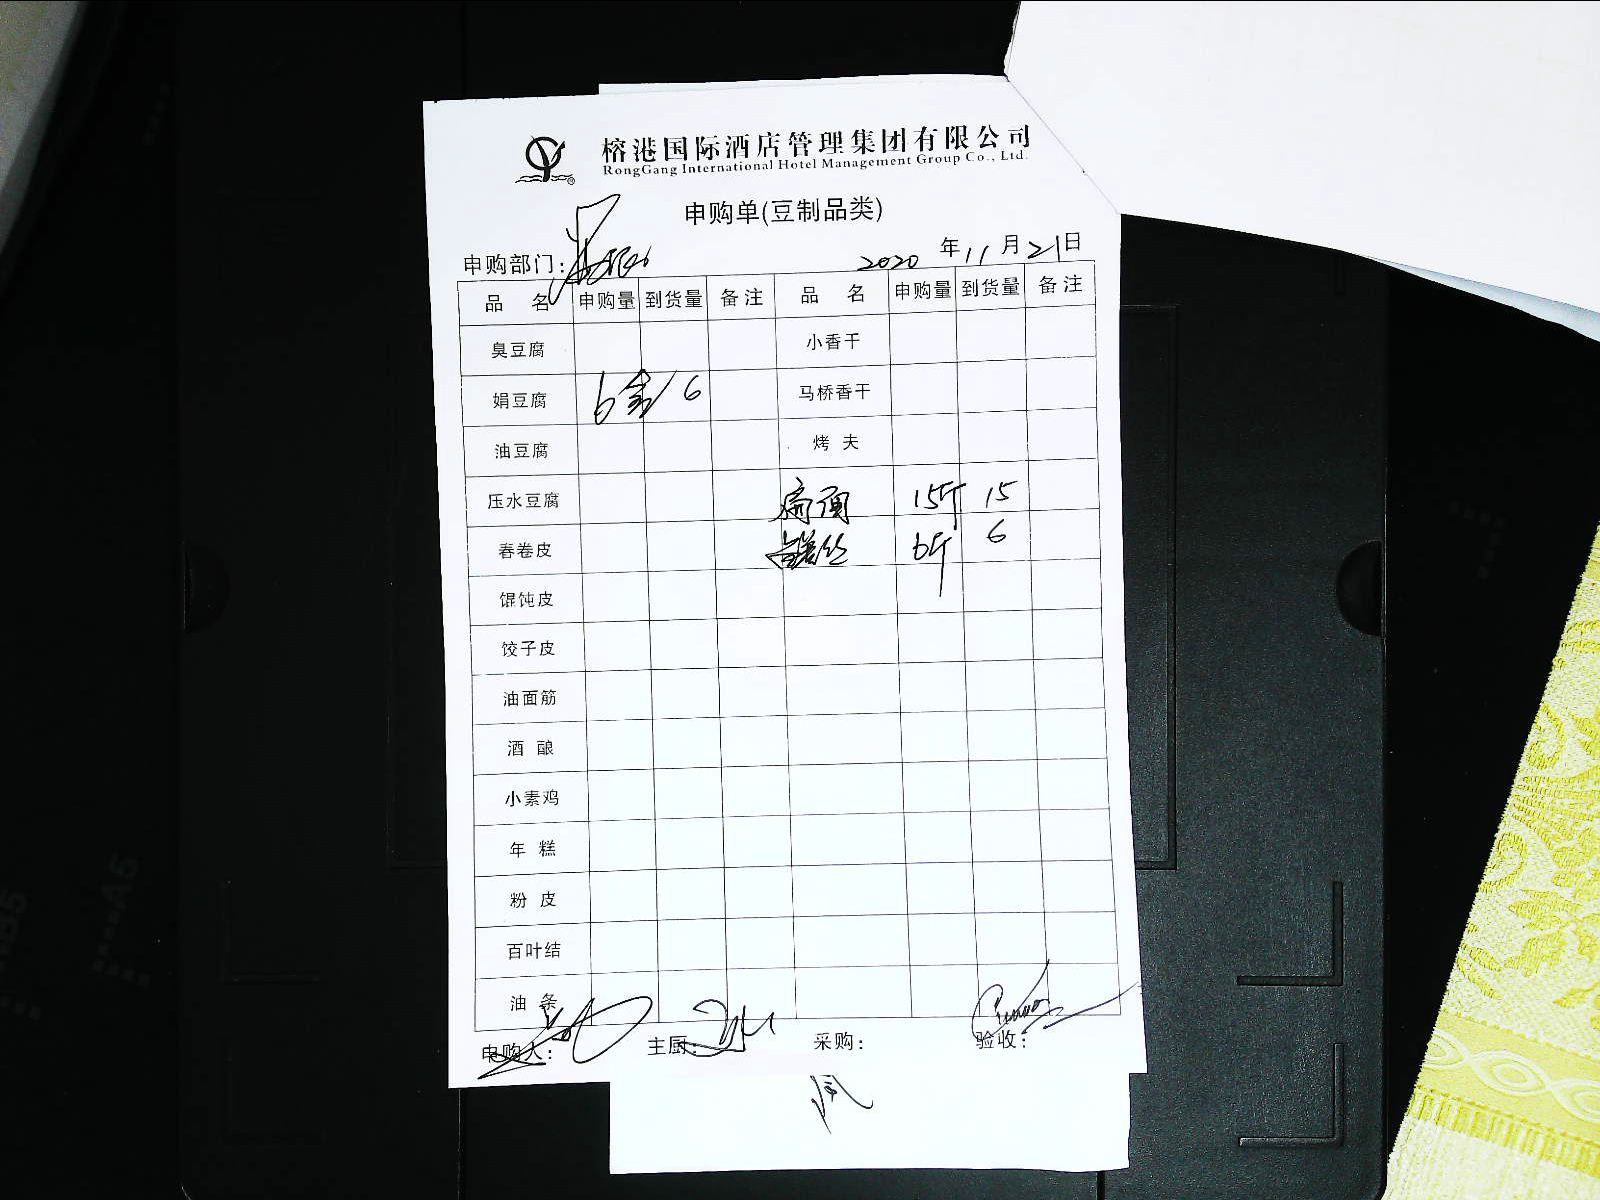 榕港国际酒店管理集团有限公司
RongGang International Hotel Management Group Co., Ltd.
申购单(豆制品类)
申购部门:
2020 年 11 月 21 日
品 名 申购量 到货量 备注 品 名 申购量 到货量 备注
臭豆腐 小香干
娟豆腐 6盒 6 马桥香干
油豆腐 烤夫
压水豆腐 15斤 15
春卷皮 6斤 6
馄饨皮
饺子皮
油面筋
酒酿
小素鸡
年糕
粉皮
百叶结
油条
申购人: 主厨: 采购: 验收:
A5
B5